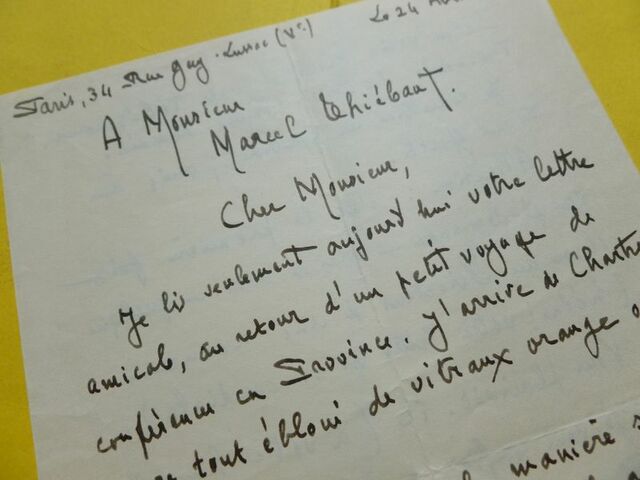 Paris, 34 Rue Gay-Lussac (Ve) Le 24
A Monsieur
Marcel Thiébaut.
Cher Monsieur,
Je lis seulement aujourd'hui votre lettre
amicale, au retour d'un petit voyage de
conférences en Province. J'arrive de Chartre
tout ébloui de vitraux orange
manière